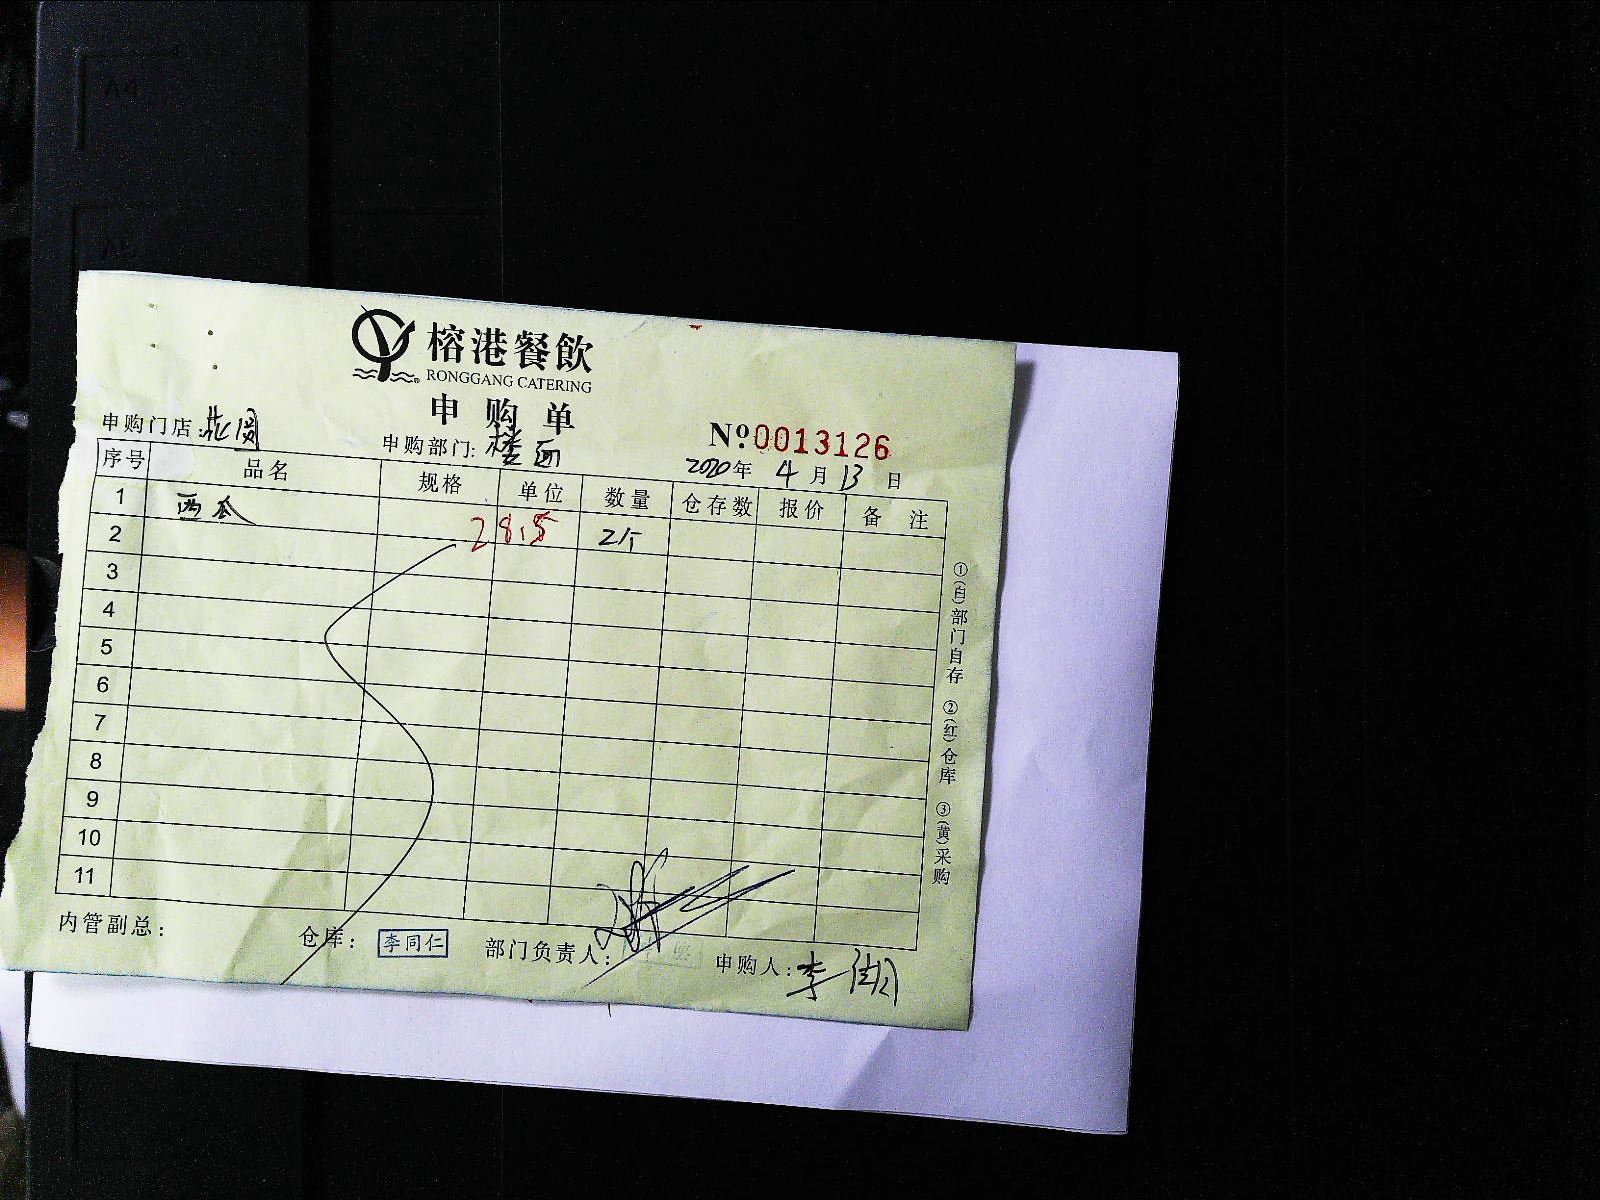 榕港餐飲
RONGGANG CATERING
申购单
申购门店:
申购部门: 楼面
Nº0013126
2020年 4月 13日
序号 品名 规格 单位 数量 仓存数 报价 备注
1 西瓜 28.5 2个
2
3
4
5
6
7
8
9
10
11
①(白)部门自存 ②(红)仓库 ③(黄)采购
内管副总:
仓库: 李同仁
部门负责人:
申购人: 李
A4
A5